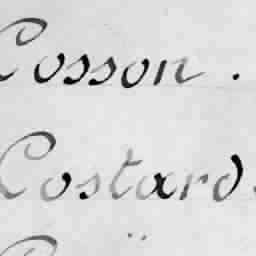 Cosson.
Costard.